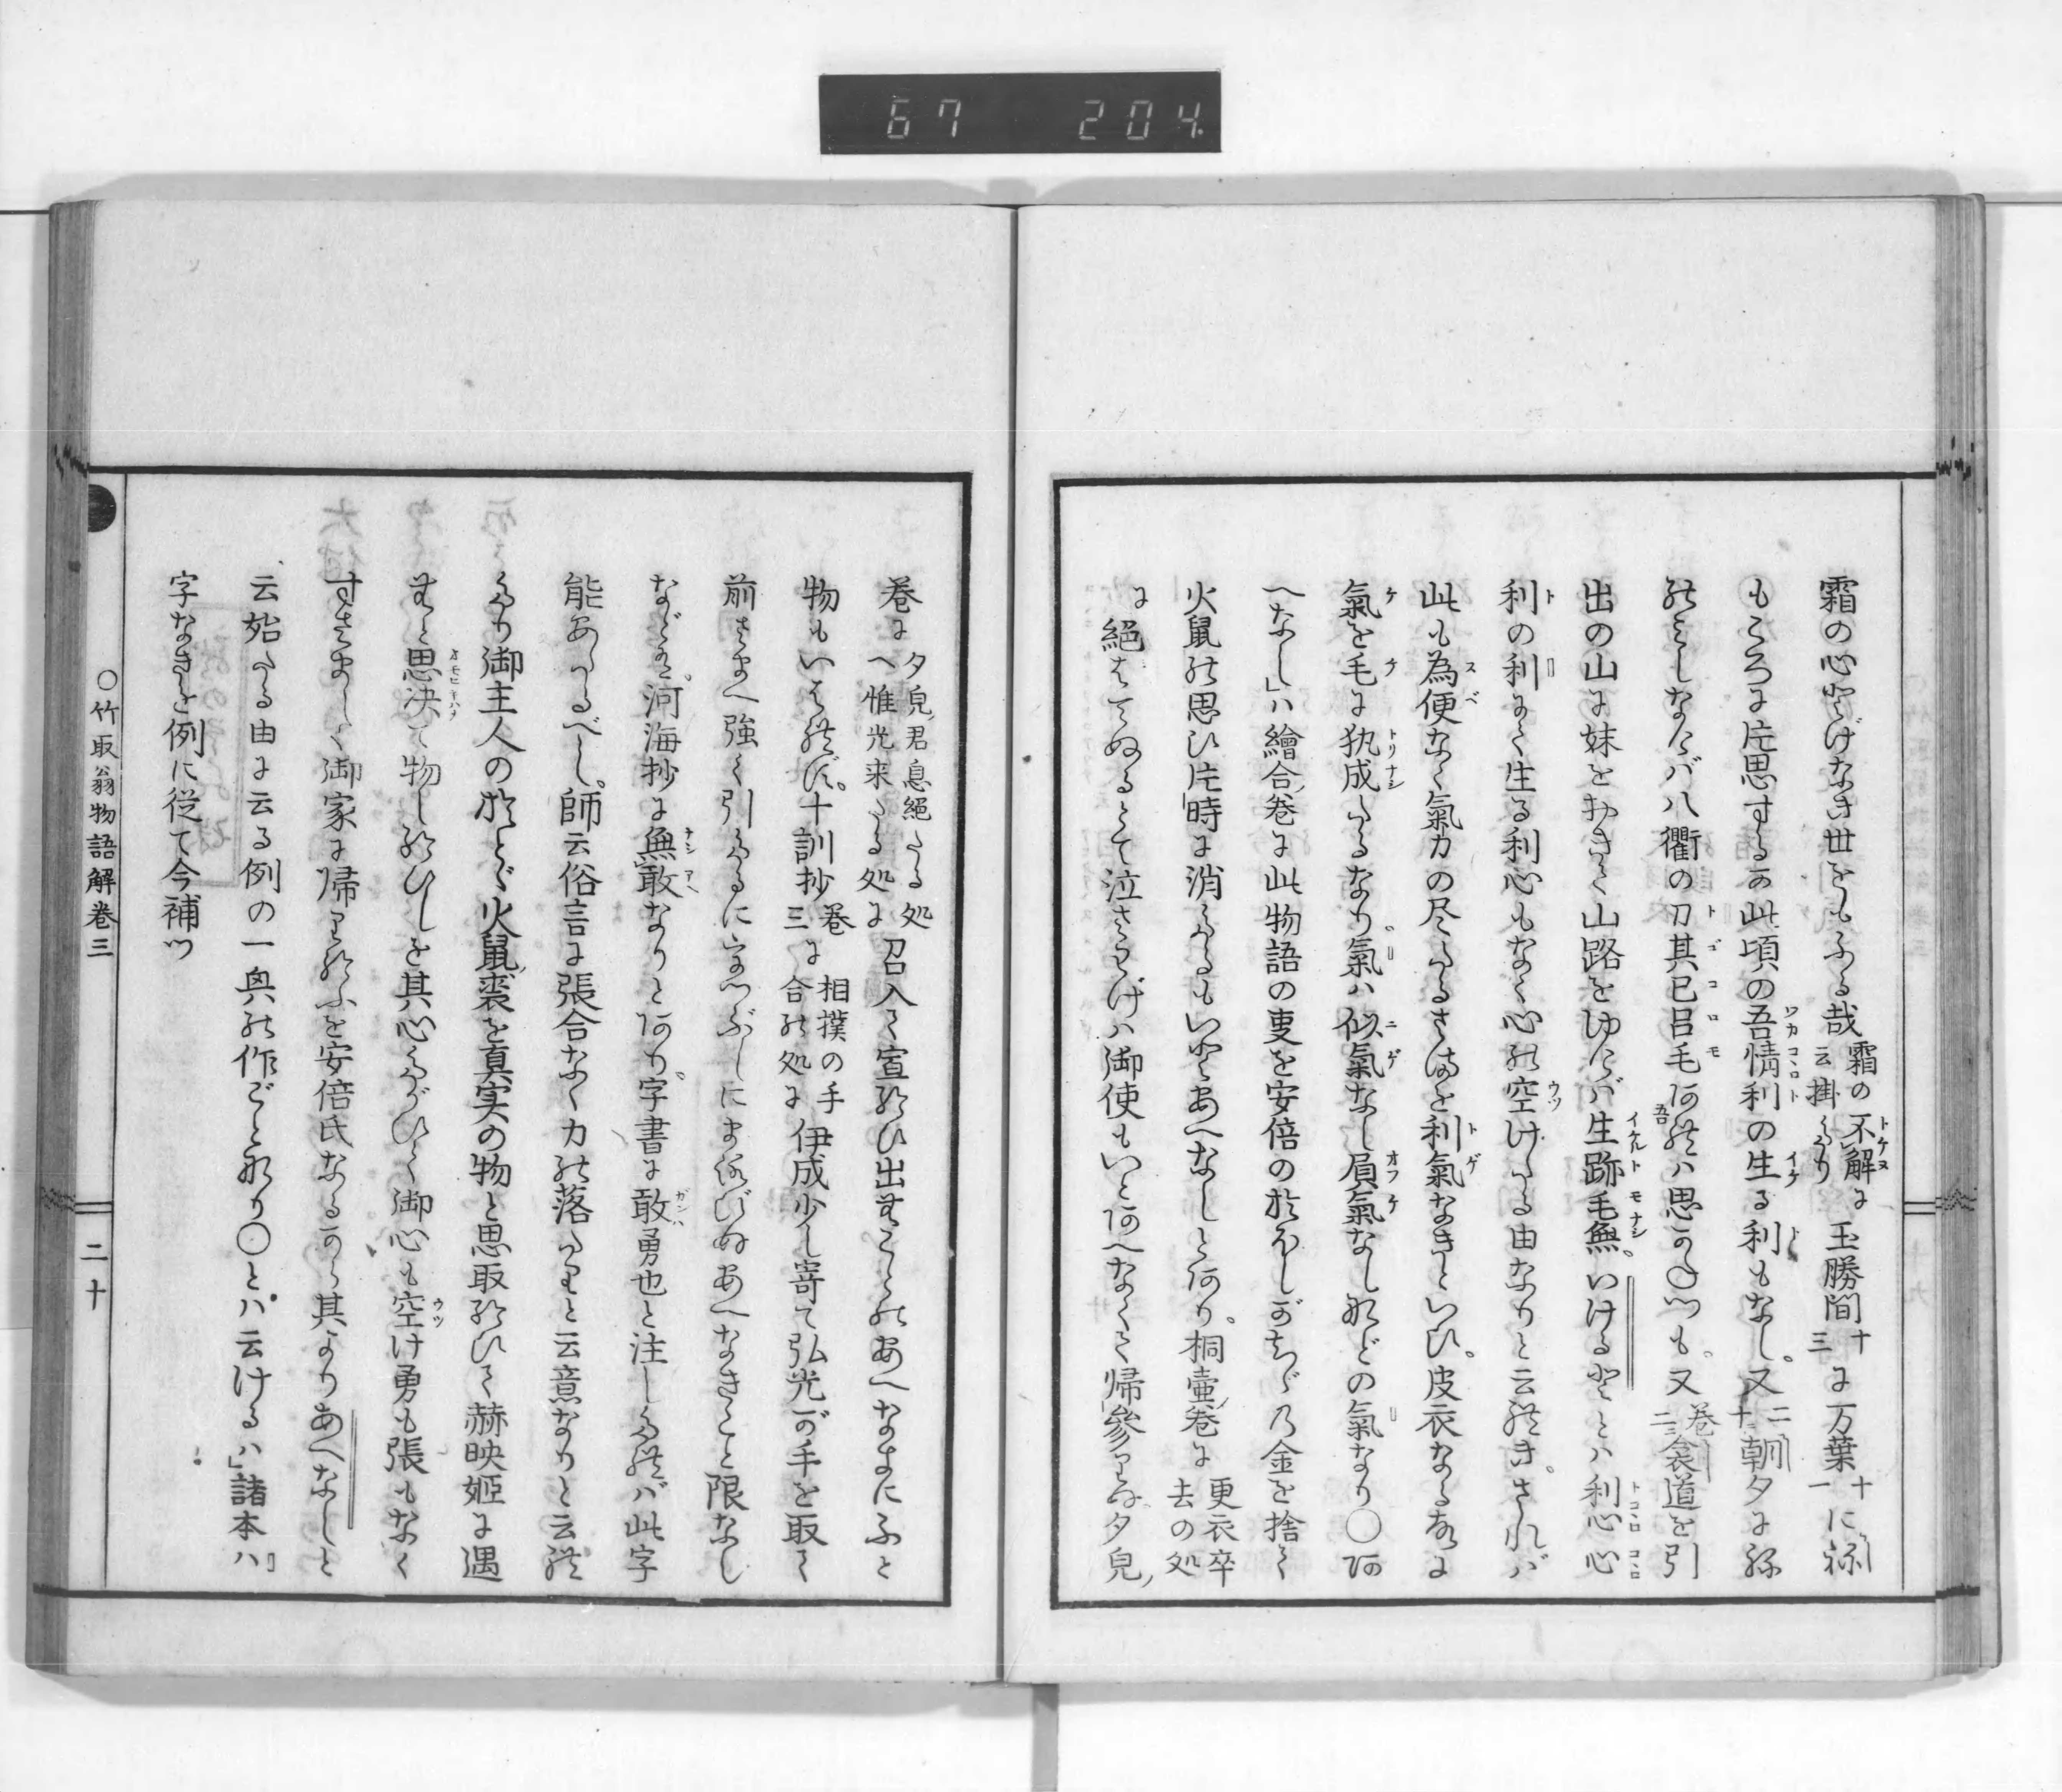 67 204
霜の心とげなき世をもふる哉霜の不解に云掛たり玉勝間十三に万葉十一に衤
もころに片思するか此頃の吾情利の生る利もなし。又十二朝夕に祢
のみしなけバ八衢の刀其己呂毛
出の山に妹をおきて山路をゆけバ生跡毛無。いけるととハ利心心
利の利にて生る利心もなく心の空けたる由なりと云れき。されバ
此も為便なく氣力の尽たるさまを利氣なきといひ。皮衣なる故に
氣を毛に執成たるなり。氣ハ似氣なし屓氣なしなどの氣なり〇あ
へなし」ハ繪合巻に此物語の事を安倍のおほしがちゞの金を捨て
火鼠の思ひ片時に消たるもいとあへなしとあり。桐壷巻に更衣卒去の処
に絕はてぬるとて泣さわげハ御使もいとあへなくて帰參りぬ夕皃
巻に夕皃君息絕たる処へ惟光来たる処に召入て宣ひ出むことのあへなきにふと
物もいはれず。十訓抄三巻に相撲の手合の処に伊成少し寄て弘光が手を取て
前ざまへ強く引たるにうつぶしにまろびぬあへなきこと限なし
などを。河海抄に無敢なりとあり。字書に敢勇也と注したれバ此字
能あたるべし。師云俗言に張合なく力の落たりと云意なりと云れ
たり御主人のおとゞ火鼠裘を真実の物と思取給ひて赫映姫に遇
むと思決て物し給ひしを其心たがひて御心も空け勇も張もなく
すさましく御家に帰り給ふを安倍氏なるから其よりあへなしと
云始たる由に云る例の一興の作ごとなり〇とハ云ける」諸本ハ
字なきを例に従て今補つ
〇竹取翁物語解巻三
二十